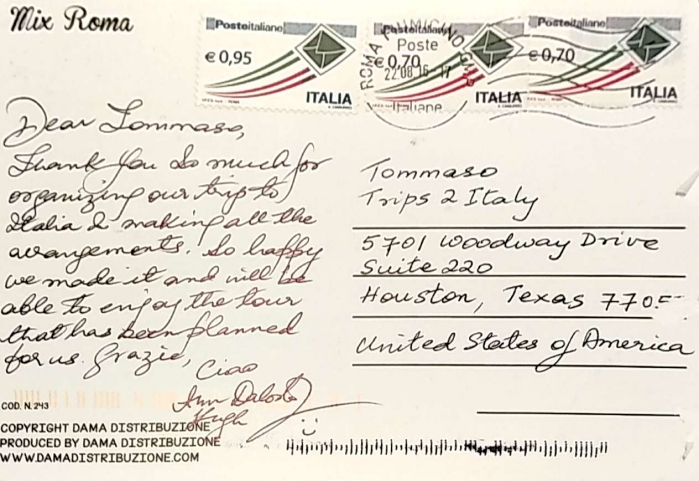 Mix Roma
Posteitaliane
€ 0,95
ITALIA
Posteitaliane
€ 0,70
ITALIA
Posteitaliane
€ 0,70
ITALIA
ROMA FIUMICINO
Poste
22 08 16 - 17
Italiane
Dear Tommaso,
Thank You So much for
organizing our trip to
Italia & making all the
arrangements. So happy
we made it and will be
able to enjoy the tour
that has been planned
for us. Grazie,
Ciao
Hugh
Tommaso
Trips 2 Italy
5701 Woodway Drive
Suite 220
Houston, Texas
United States of America
COD. N. 243
COPYRIGHT DAMA DISTRIBUZIONE
PRODUCED BY DAMA DISTRIBUZIONE
WWW.DAMADISTRIBUZIONE.COM